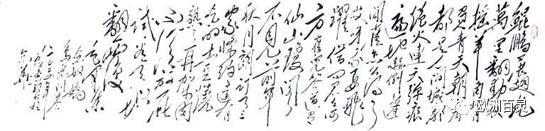 鲲鹏展翅九
万里翻动扶
摇羊角背
负青天朝下看
都是人间城郭
炮火连天弹痕
遍地吓倒蓬
间雀怎么得了
哎呀我要飞
跃借问君去何
方雀儿答道有
仙山琼阁
不见前年
秋月朗订了三
家条约还有
吃的土豆烧
熟了再加牛肉
不须放屁
试看天地
翻覆
念奴娇
鸟儿问答
欧洲百泉